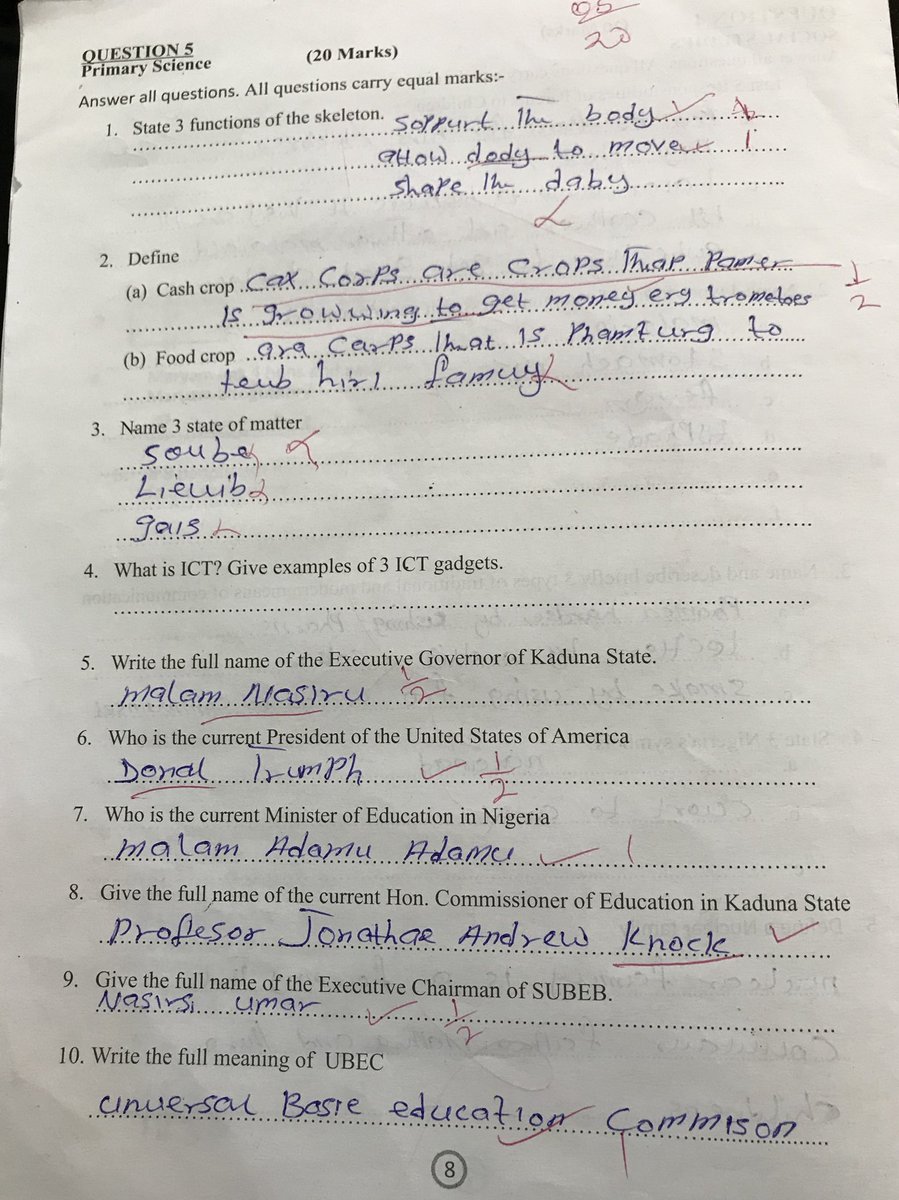 05/20
QUESTION 5 (20 Marks)
Primary Science
Answer all questions. All questions carry equal marks:-
1. State 3 functions of the skeleton. Soppurt The body
allow dody to move 1
Shape the daby
2. Define
(a) Cash crop Cax Corps are Crops That Pamer
Is growwing to get money erg trometoes 1/2
(b) Food crop ara Carps that Is Phamturg to
teub hirl famuy
3. Name 3 state of matter
Soube
Lieuib
gais
4. What is ICT? Give examples of 3 ICT gadgets.
5. Write the full name of the Executive Governor of Kaduna State.
malam Nasiru 1/2
6. Who is the current President of the United States of America
Donal Trumph 1/2
7. Who is the current Minister of Education in Nigeria
malam Adamu Adamu 1
8. Give the full name of the current Hon. Commissioner of Education in Kaduna State
Profesor Jonathae Andrew Knock
9. Give the full name of the Executive Chairman of SUBEB.
Nasirsi umar 1/2
10. Write the full meaning of UBEC
unuersal Basie education Commison
8